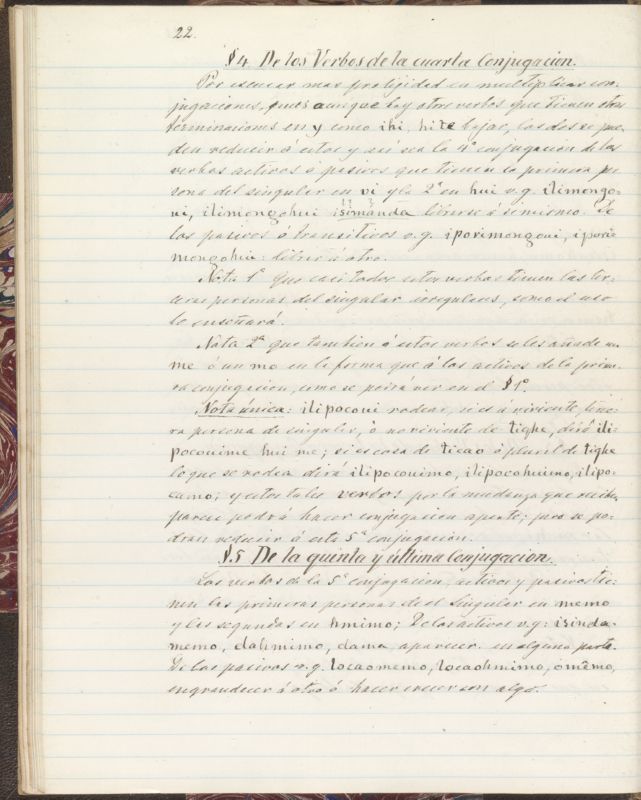 22.
§4 De los Verbos de la cuarta Conjugacion.
Por escusar mas prolijidad en multiplicar con-
jugaciones, pues aunque hay otros verbos que tienen otras
terminaciones en y como ihi, hite bajar, los dos se pue-
den reducir á estos y asi sea la 4ª conjugacion de los
verbos activos ó pasivos que tienen la primera per
sona del singular en vi y la 2ª en hui v.g. ilimongo-
ui, ilimongohui isimánda librarse á si mismo. De
los pasivos ó transitivos v.g. iporimongoui, ipori
mongohui: librar á otro.
Nota 1ª Que casi todos estos verbos tienen las ter-
ceras personas del singular irregulares, como el uso
lo enseñará.
Nota 2ª que tambien á estos verbos se les añade un
me ó un mo en la forma que á los activos de la prime-
ra conjugacion, como se podrá ver en el §1º.
Nota única: ilipocoui rodear, si es a viviente, prime-
ra persona de singular, ó no viviente de tighe, dirá ili-
pocouime hui me; si es cosa de ticao ó plural de tighe
lo que se rodea dirá ilipocouimo, ilipocohuimo, ilipo-
cumo; y estos tales verbos por la mudanza que reciben
parece podrá hacer conjugacion aparte; pero se po-
dran reducir á esta 5ª conjugacion.
§.5 De la quinta y última Conjugacion.
Los verbos de la 5ª conjugacion, activos y pasivos tie-
nen las primeras personas de el singular en memo
y las segundas en hmimo; De los activos v.g: isinda-
memo, dahmimo, dama aparecer en alguna parte.
De los pasivos v.g. locaomemo, locaohmimo, omêmo,
engrandecer á otro ó hacer crecer con algo.